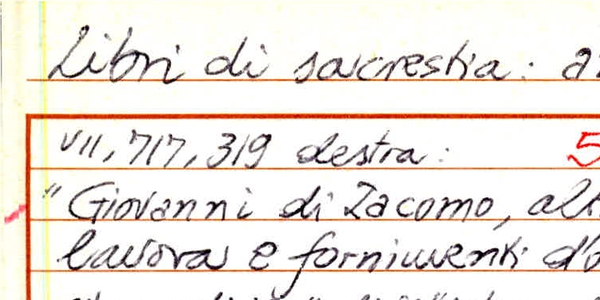 Libri di sacrestia: a
VII, 717, 319 destra: 5
"Giovanni di Iacomo, alt
lavora e fornimenti d'o